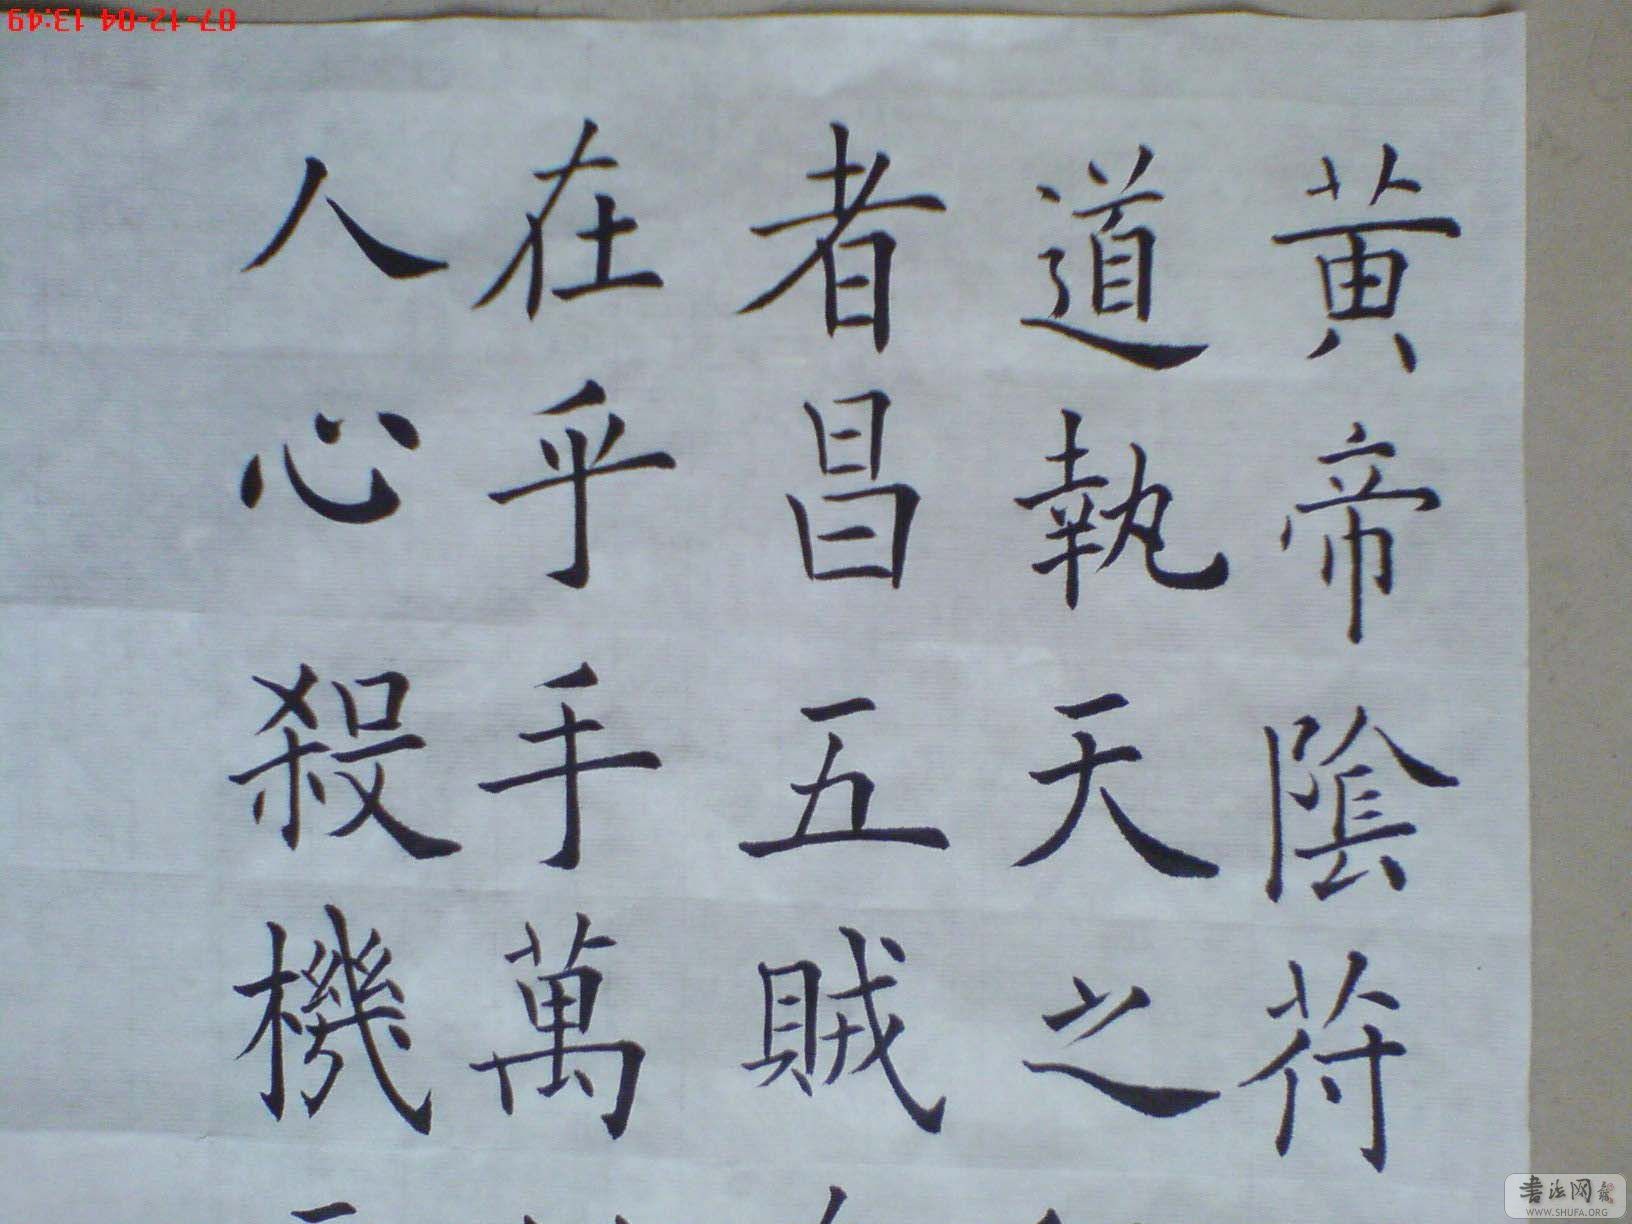 黄帝陰符
道執天之
者昌五賊
在乎手萬
人心殺機
07-12-04 13:49
书法网
WWW.SHUFA.ORG